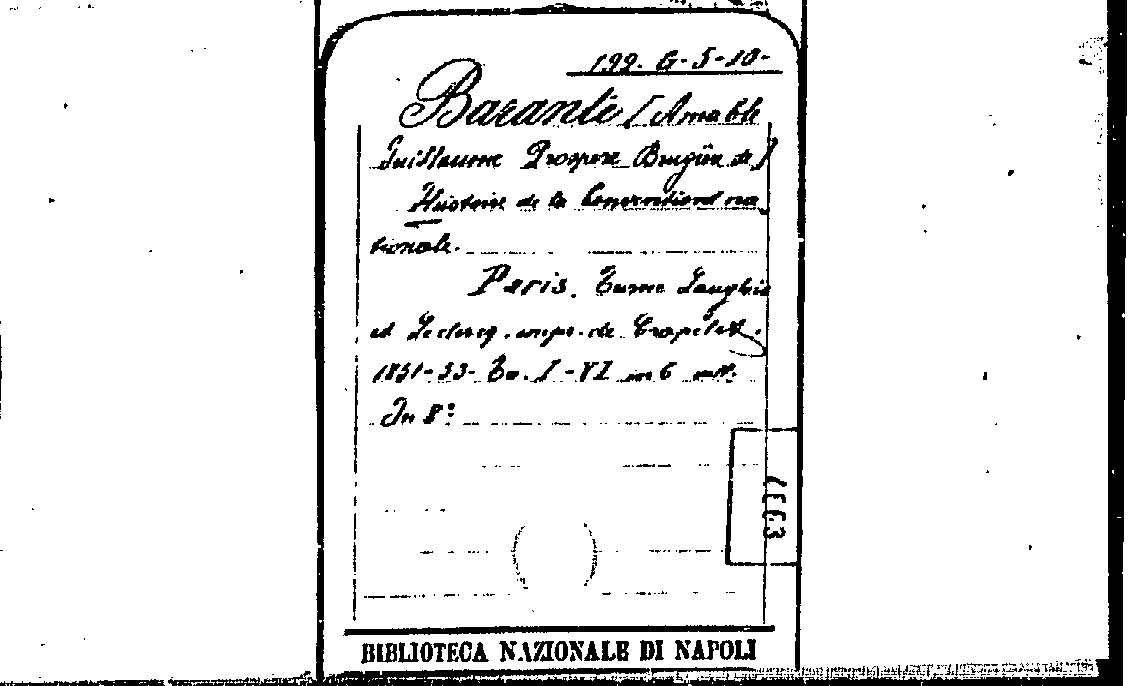 199. G-5-10-
Barante [Amable
Guillaume Prospere Brugière de]
Histoire de la Convention na_
tionale.
Paris, Furne Langlois
et Leclercq. impr. de Crapelet.
1851-53- To. I-VI in 6 vol.
In 8°
BIBLIOTECA NAZIONALE DI NAPOLI